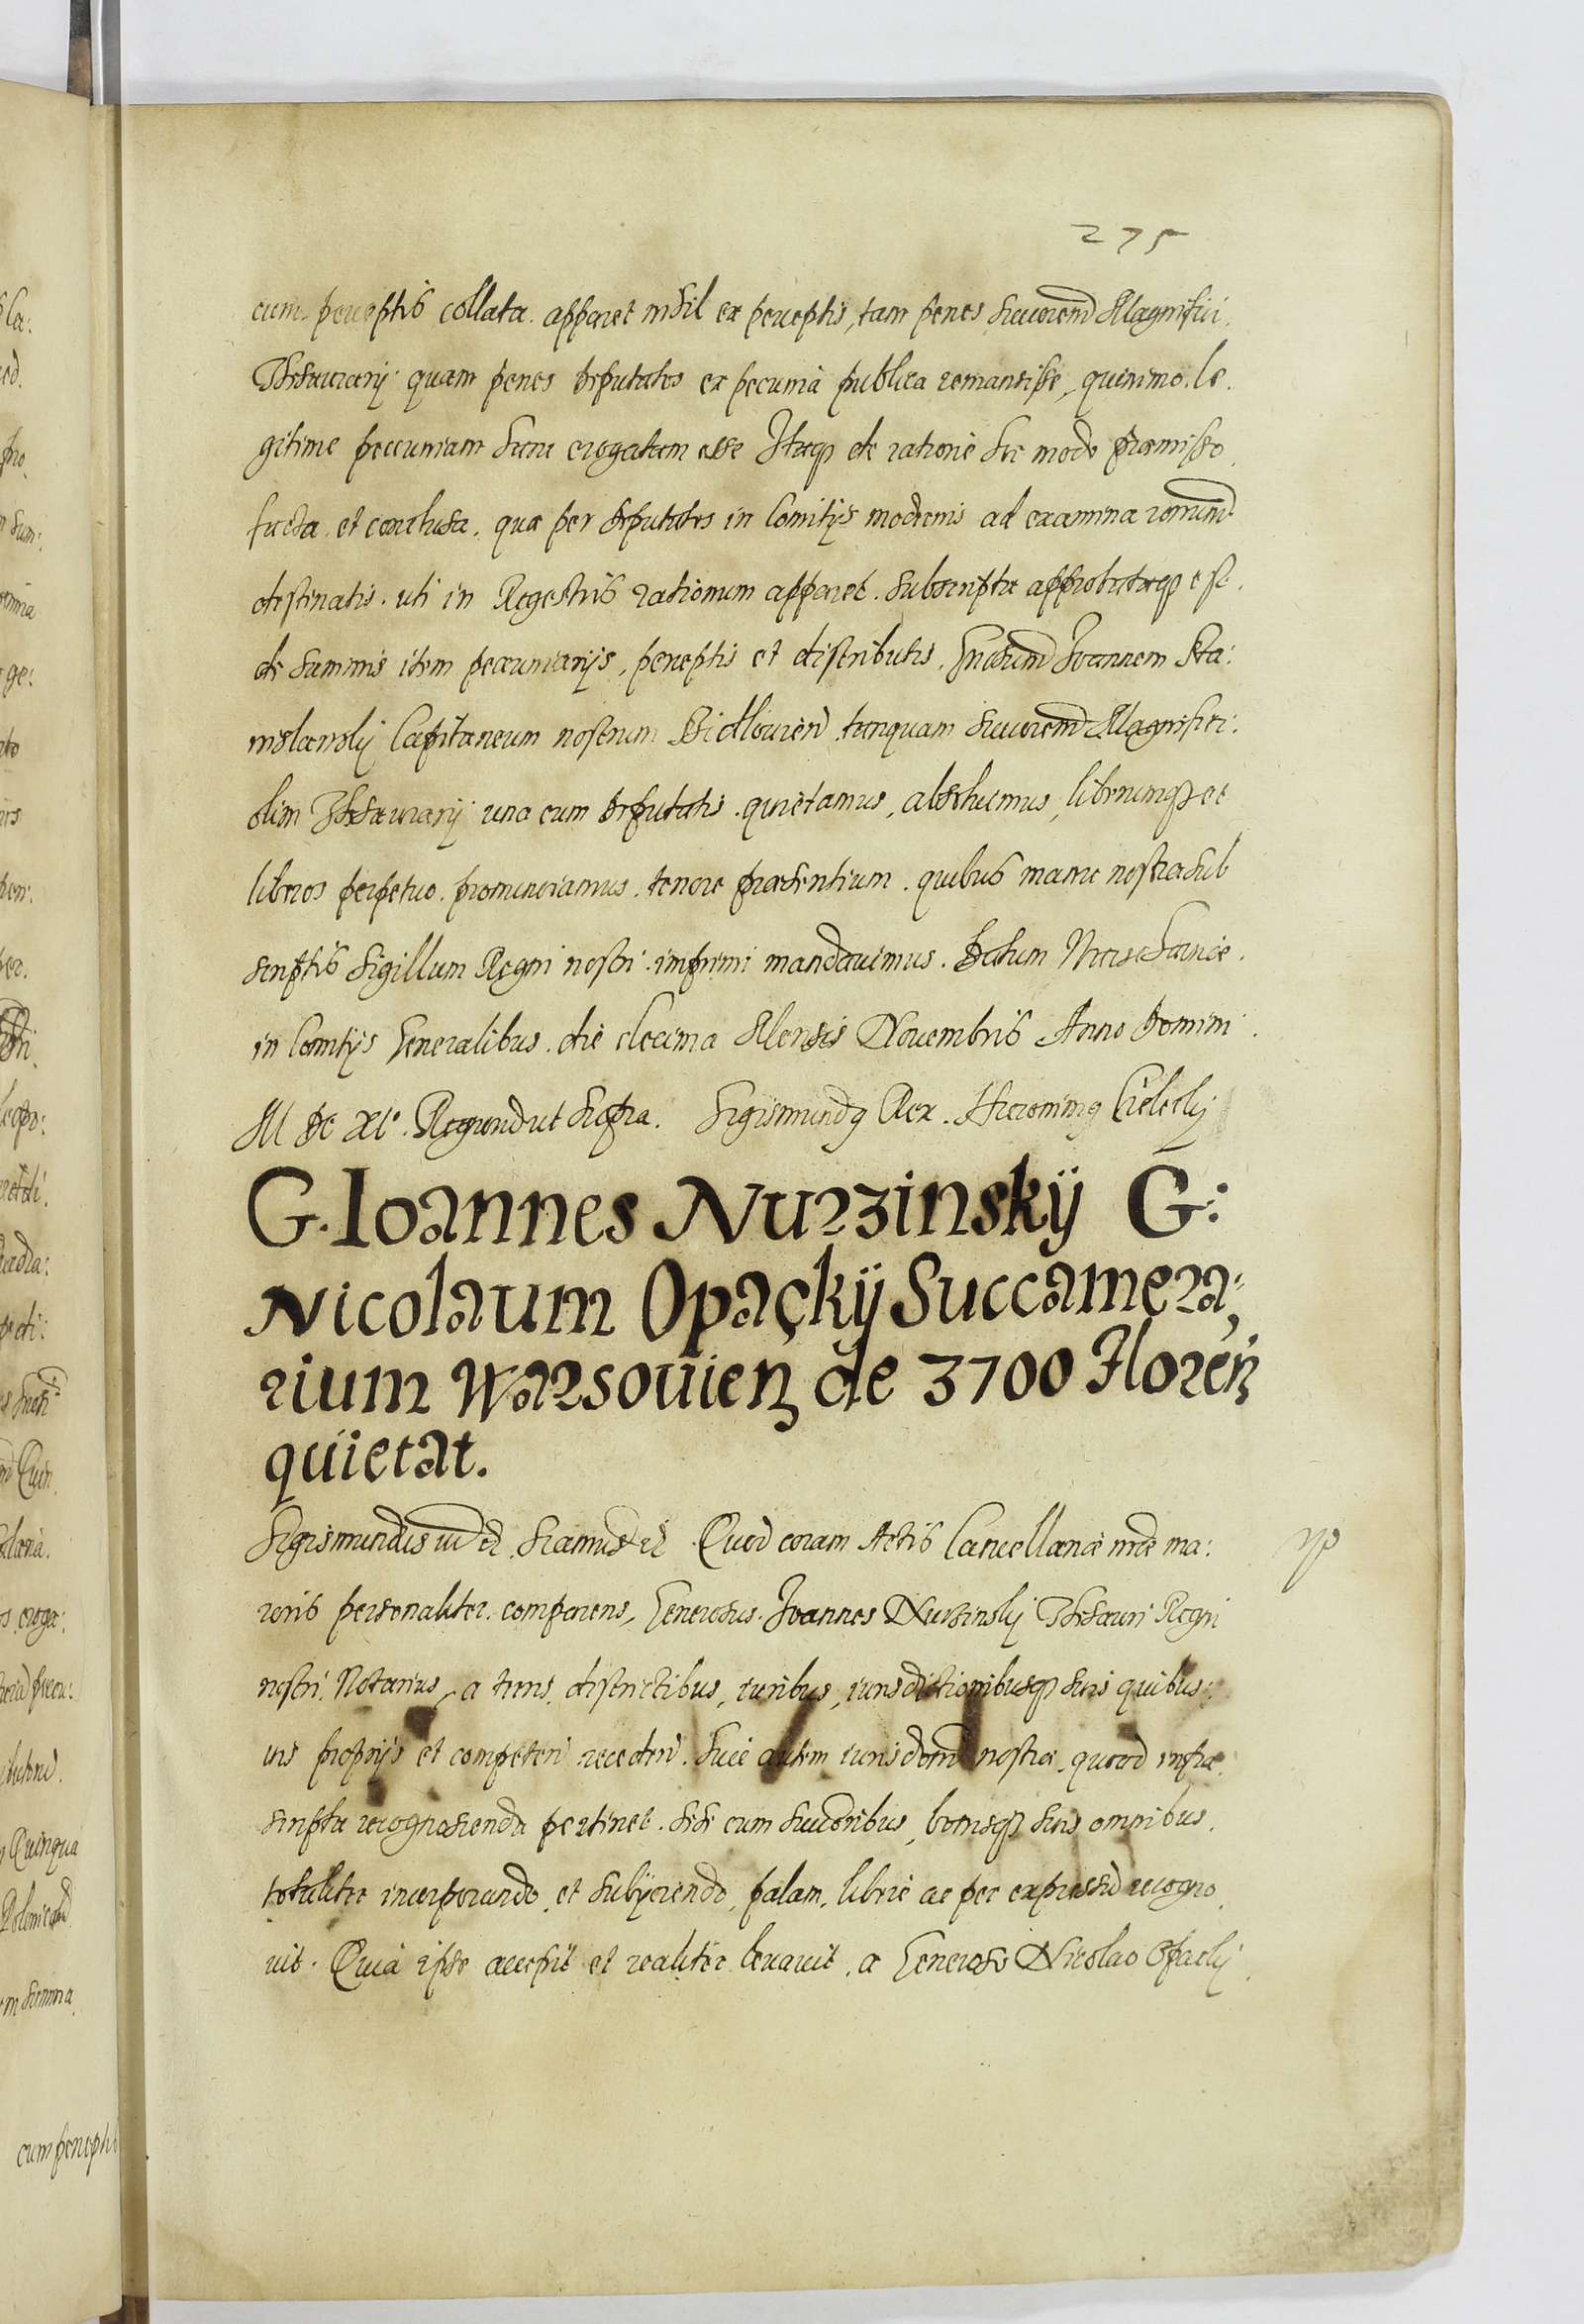 275
cum perceptis collata. apparet nihil ex perceptis, tam penes successorem Magnifici.
Thesaurarij quam penes deputatos ex pecunia publica remansisse, quinimo. le.
gitime pecuniam hanc erogatam esse Itaq de ratione hoc modo præmisso.
facta. et conclusa. quæ per deputatos in Comitijs modernis ad examina
destinatis. uti in Regestris rationum apparet. subscripta approbataq est.
de summis item pecuniarijs, perceptis et distributis. Joannem Sta:
nislawsky Capitaneum nostrum tanquam Magnifici:
olim Thesaurarij una cum deputatis. quietamus, absoluimus, liberumq et
liberos perpetuo. pronunciamus. tenore præsentium. quibus manu nostra sub
scriptis Sigillum Regni nostri. imprimi mandauimus. Datum Warschauiæ.
in Comitijs Generalibus. die decima Mensis Nouembris Anno Domini
M DC XI. ut supra. Sigismundq Rex. Hieronimq Cielecky
G. Ioannes Nurzinskÿ G:
Nicolaum Opackÿ Succamera:
rium Warsouien de 3700 Floren
quietat.
Sigismundus Quod coram Actis Cancellariæ ma:
ioris personaliter. comparens, Generosus. Joannes Nurzinsky Thesauri Regni
nostri. Notarius, a terris, districtibus, iuribus, iurisdictionibusq suis quibus:
uis proprijs et competen receden. huic autem iurisdoni nostræ, quoad infra.
scripta recognoscenda pertinet. sese cum successoribus, bonisq suis omnibus,
totaliter incorporando, et subÿciendo, palam, libere ac per expressum recogno.
uit. Quia ipse accepit et realiter leuauit. a Generoso Nicolao Opacky
cum percepti